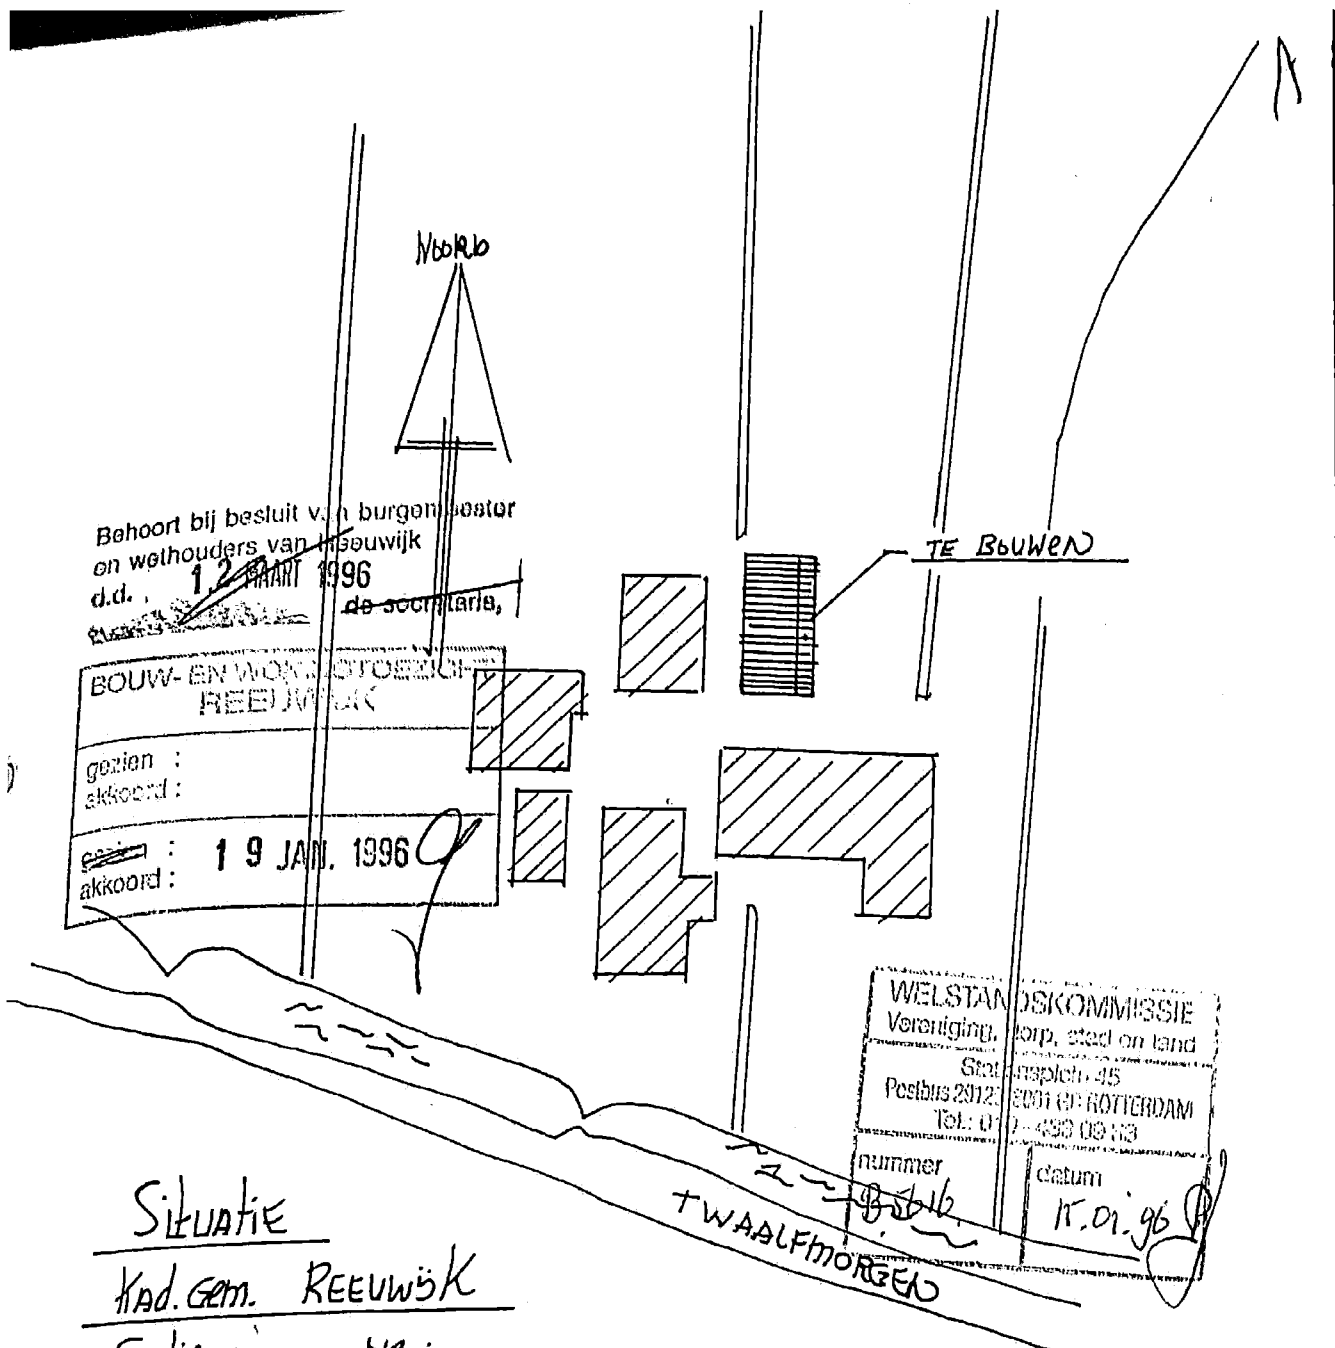 Noord
Behoort bij besluit van burgemeester
en wethouders van Reeuwijk
d.d. 12 MAART 1996
de secretaris,
TE BOUWEN
BOUW- EN WONINGTOEZICHT
REEUWIJK
gezien :
akkoord :
gezien :
akkoord : 19 JAN. 1996
WELSTANDSKOMMISSIE
Vereniging, dorp, stad en land
Stationsplein 45
ROTTERDAM
Tel.: 010 -
nummer
datum
TWAALFMORGEN
Situatie
Kad. Gem. REEUWIJK